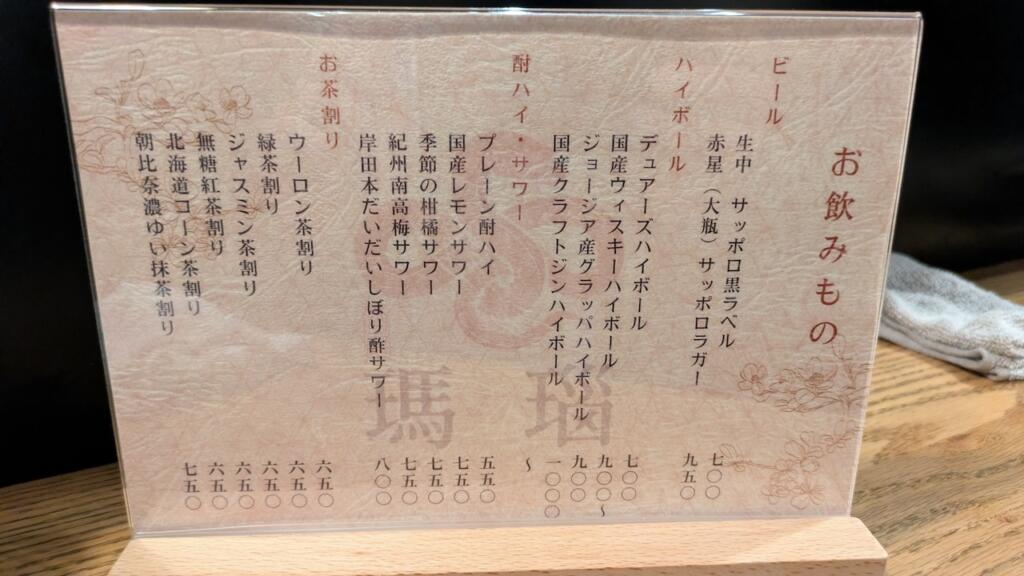 お飲みもの
ビール
生中 サッポロ黒ラベル 七〇〇
赤星(大瓶)サッポロラガー 九五〇
ハイボール
デュアーズハイボール 七〇〇
国産ウィスキーハイボール 九〇〇〜
ジョージア産グラッパハイボール 九〇〇
国産クラフトジンハイボール 一〇〇〇〜
酎ハイ・サワー
プレーン酎ハイ 五五〇
国産レモンサワー 七五〇
季節の柑橘サワー 七五〇
紀州南高梅サワー 七五〇
岸田本だいだいしぼり酢サワー 八〇〇
お茶割り
ウーロン茶割り 六五〇
緑茶割り 六五〇
ジャスミン茶割り 六五〇
無糖紅茶割り 六五〇
北海道コーン茶割り 六五〇
朝比奈濃ゆい抹茶割り 七五〇
瑪瑙